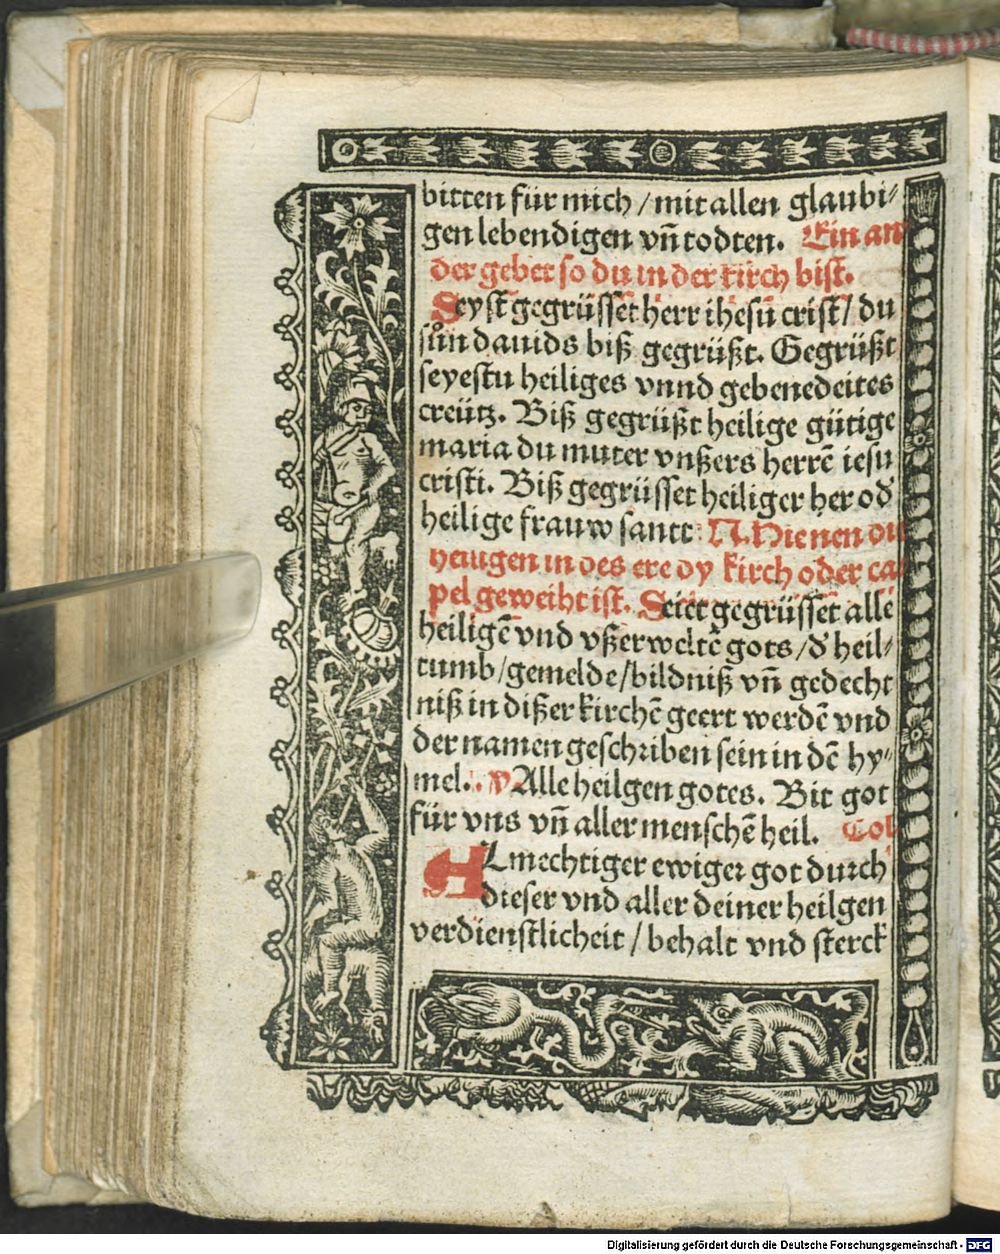 bitten für mich / mit allen glaubi⸗
gen lebendigen vñ todten. Ein an
der gebet so du in der kirch bist.
Seyst gegrüsset herr ihesu crist / du
sůn dauids biß gegrüßt. Gegrüßt
seyestu heiliges vnnd gebenedeites
creütz. Biß gegrüßt heilige gütige
maria du muter vnßers herrē iesu
cristi. Biß gegrüsset heiliger her od̕
heilige frauw sanct N. Hie nen du
heiligen in des ere dy kirch oder ca
pel geweiht ist. Seiet gegrüsset alle
heiligē vnd vßerweltē gots / d̕ heil⸗
tumb / gemelde / bildniß vñ gedecht
niß in dißer kirchē geert werdē vnd
der namen geschriben sein in dē hy⸗
mel. V Alle heilgen gotes. Bit got
für vns vñ aller menschē heil. Col
ALmechtiger ewiger got durch
dieser vnd aller deiner heilgen
verdienstlicheit / behalt vnd sterck
Digitalisierung gefördert durch die Deutsche Forschungsgemeinschaft - DFG